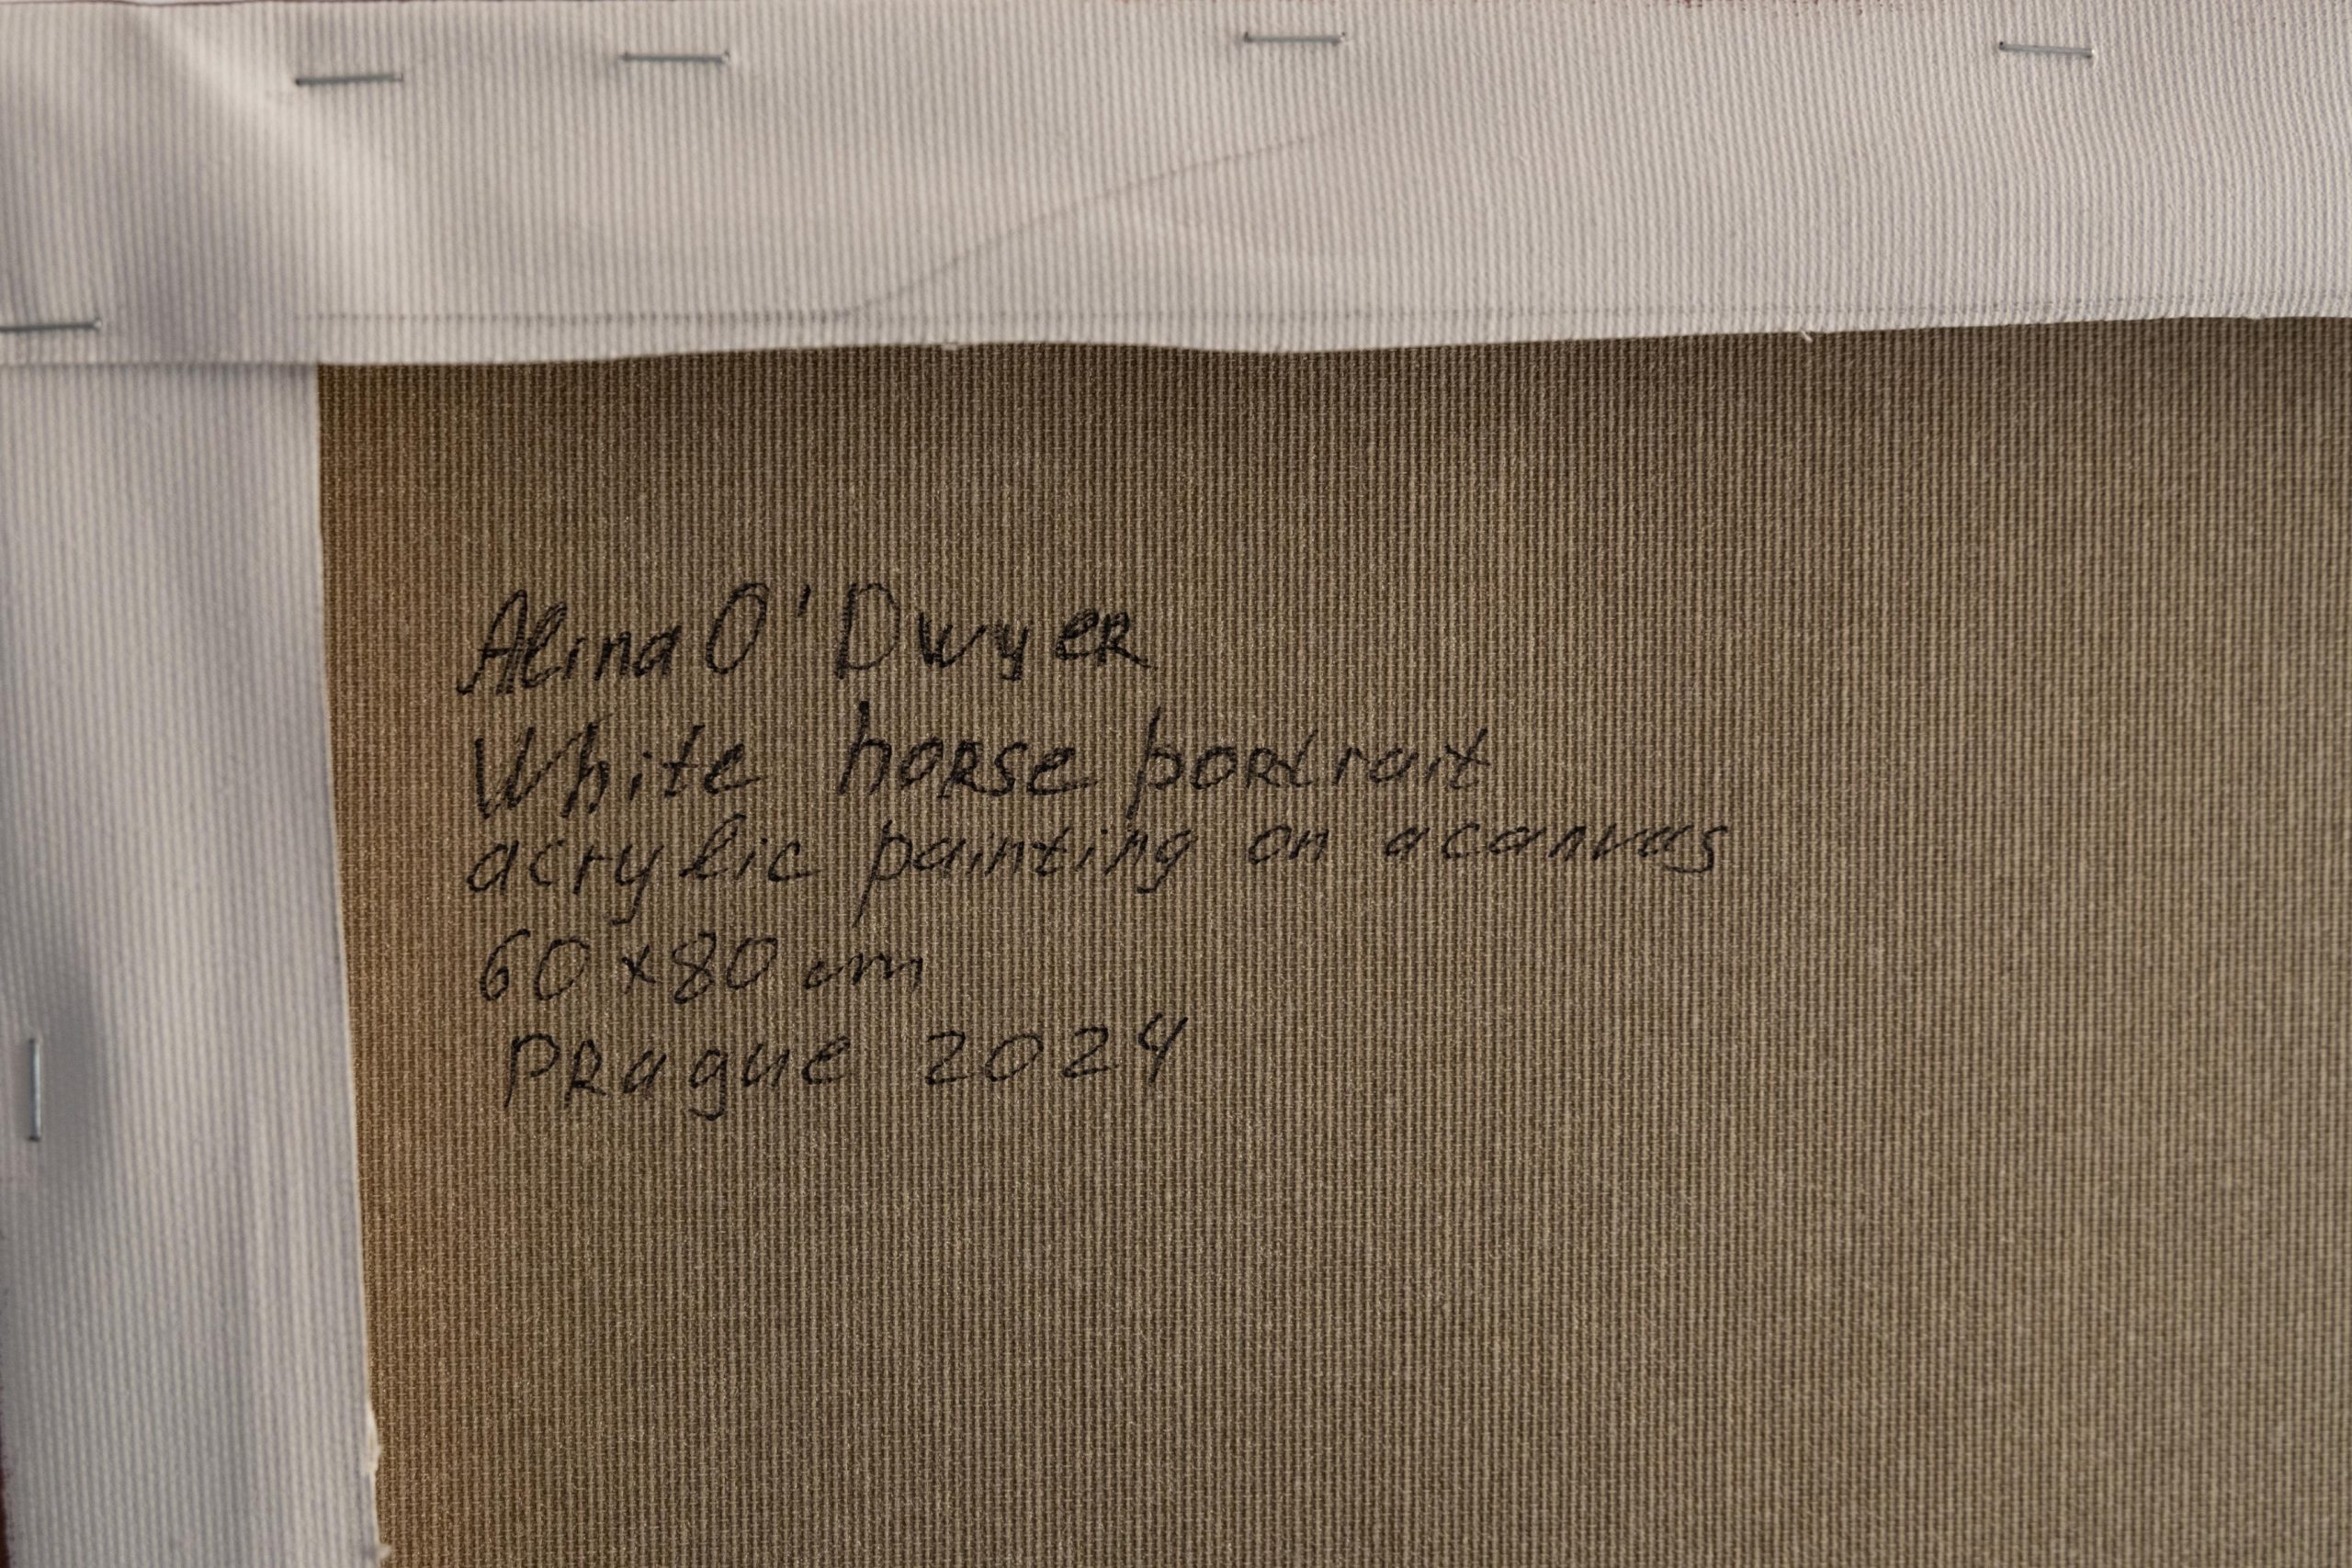 Alina O'Dwyer
White horse portrait
acrylic painting on a canvas
60x80 cm
Prague 2024